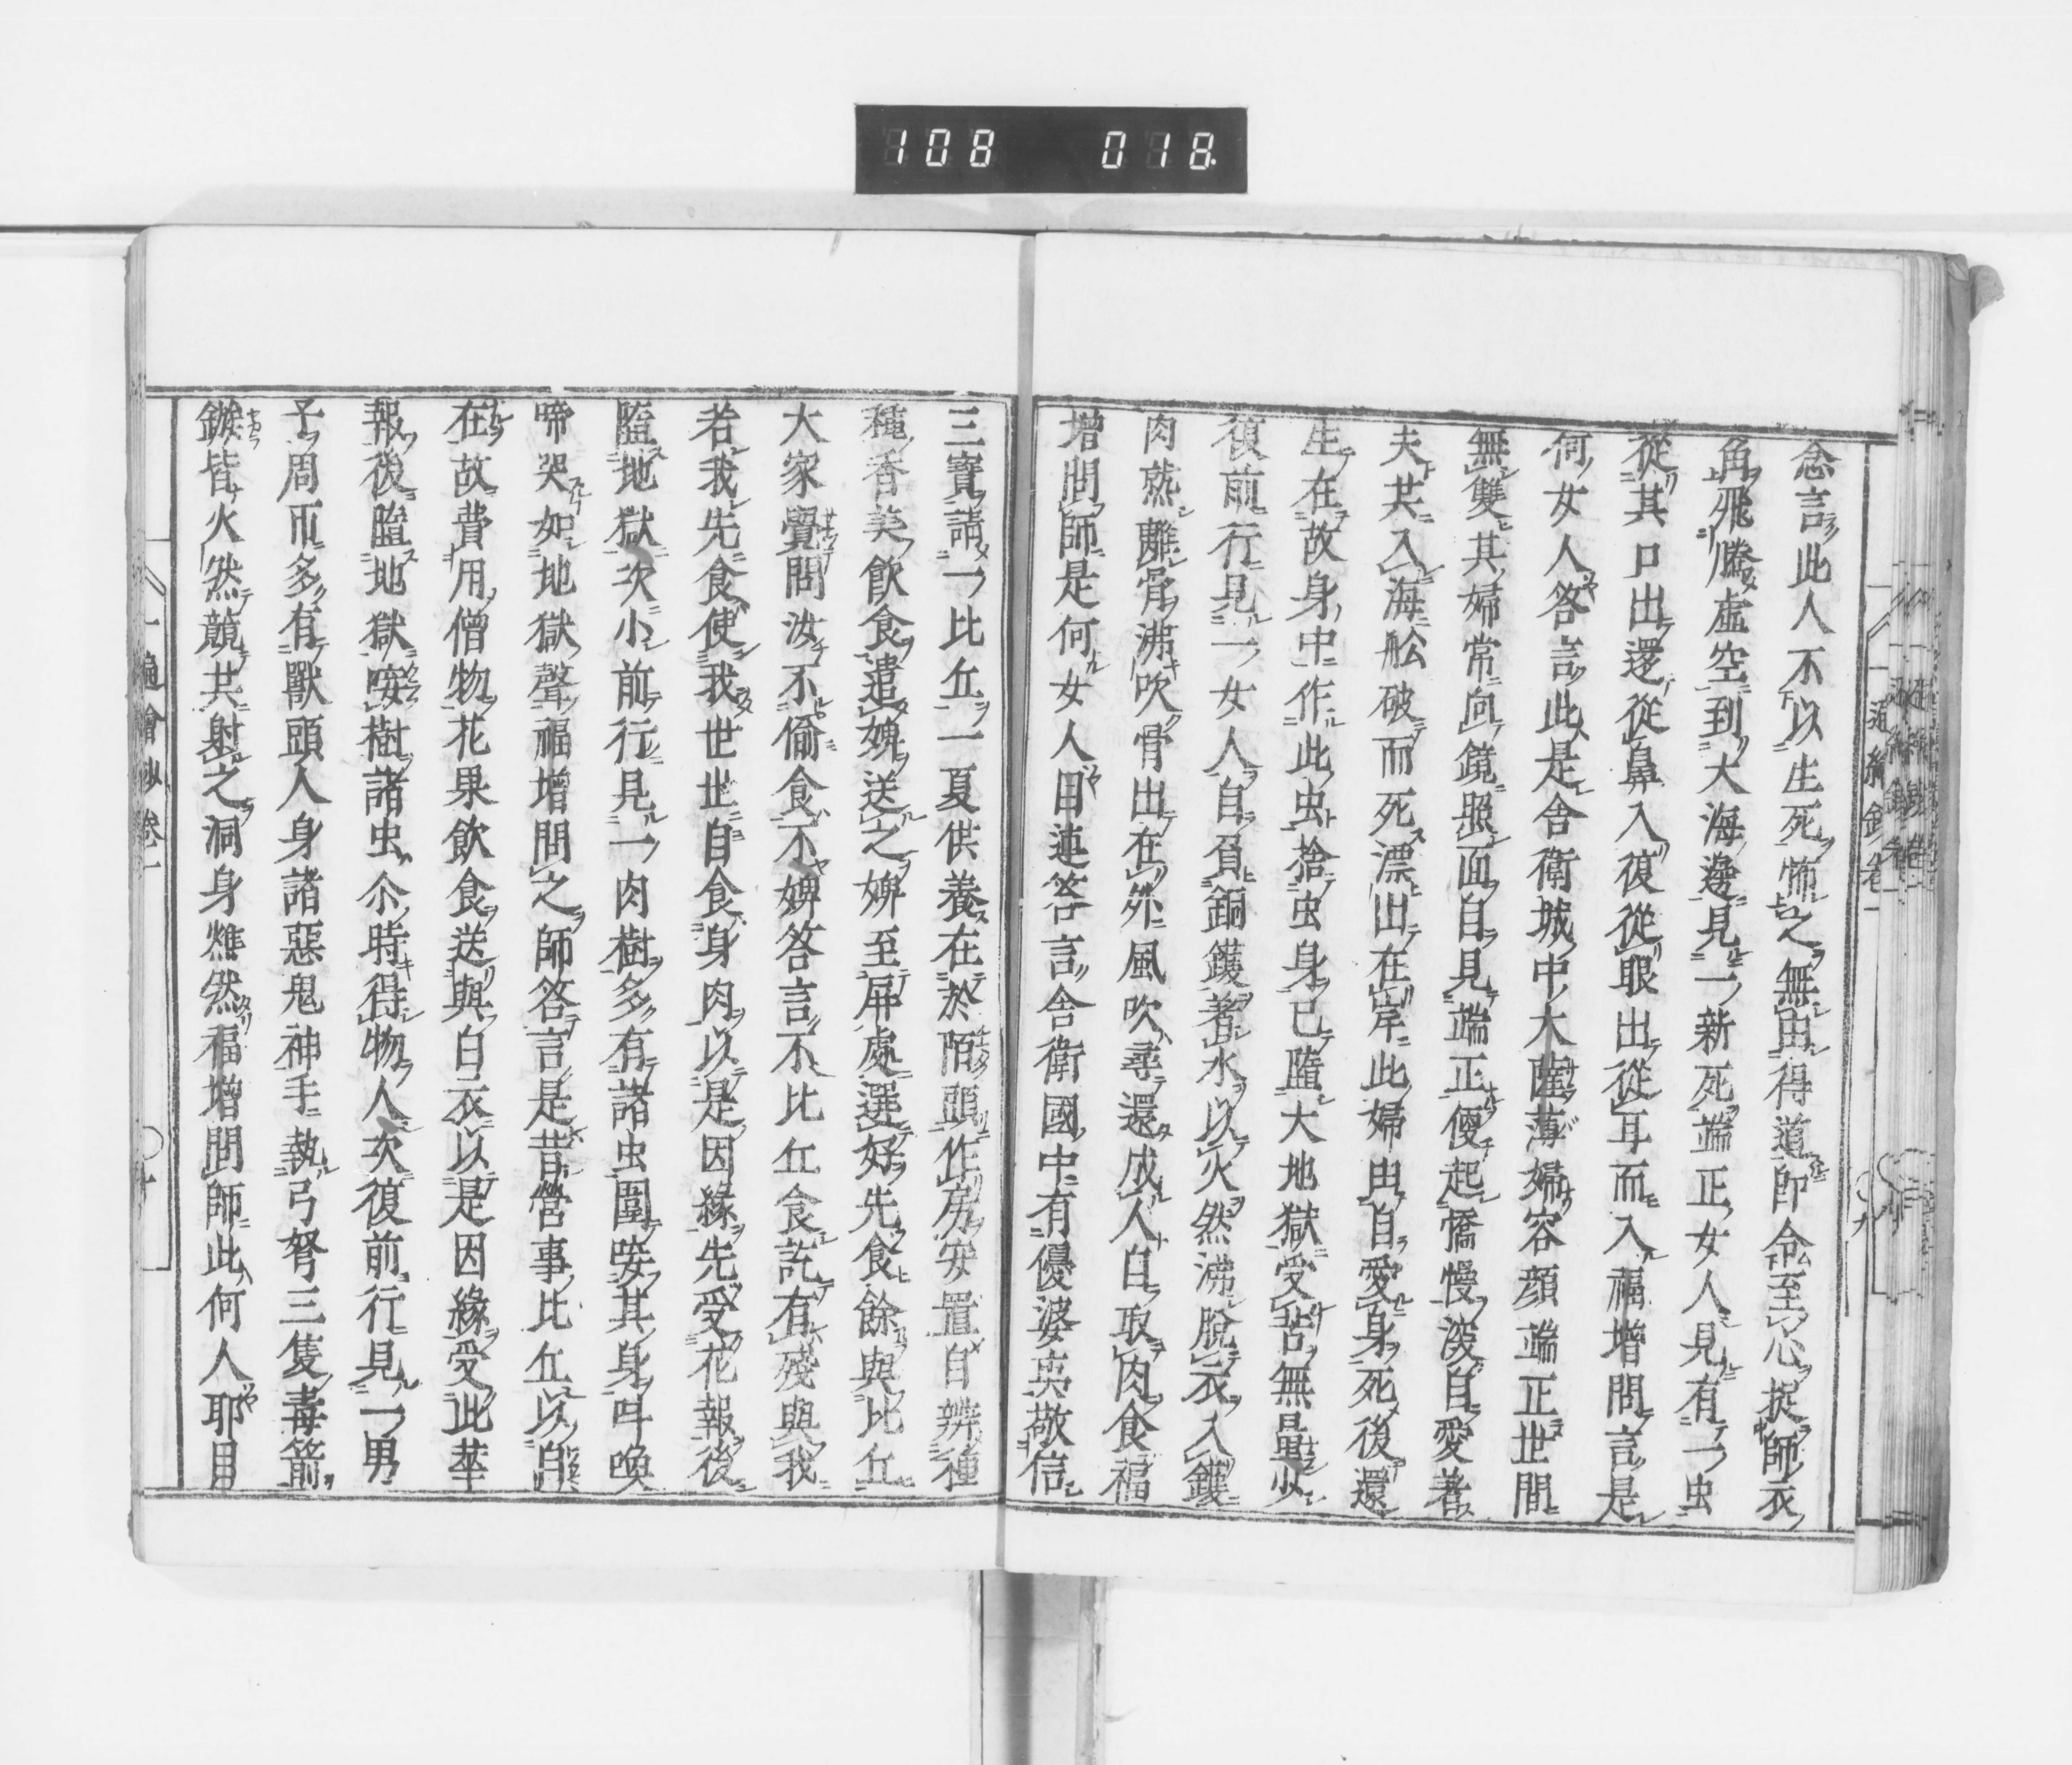 108 018
念言此人不以生死怖之無由得道即命至心捉師衣
角飛騰虛空到大海邊見一新死端正女人見有一虫
從其口出還從鼻入復從眼出從耳而入福增問言是
何女人答言此是舍衛城中大薩薄婦容顏端正世間
無雙其婦常向鏡照面自見端正便起憍慢深自愛著
夫共入海舩破而死漂出在岸此婦由自愛身死後還
生在故身中作此虫捨虫身已墮大地獄受苦無量少
復前行見一女人自負銅鑊著水以火然沸脫衣入鑊
肉熟離骨沸吹骨出在外風吹尋還成人自取肉食福
增問師是何女人目連答言舍衛國中有優婆夷敬信
三寶請一比丘一夏供養在於陌頭作房安置自辨種
種香美飲食遣婢送之婢至屏處選好先食餘與比丘
大家覺問汝不偷食不婢答言不比丘食訖有殘與我
若我先食使我世世自食身肉以是因緣先受花報後
墮地獄次小前行見一肉樹多有諸虫圍唼其身叫喚
啼哭如地獄聲福增問之師答言是昔營事比丘以自
在故費用僧物花果飲食送與白衣以是因緣受此華
報後墮地獄唼樹諸虫尒時得物人次復前行見一男
子周帀多有獸頭人身諸惡鬼神手執弓弩三隻毒箭
鏃皆火然競共射之洞身燋然福增問師此何人耶目
一遍繪鈔卷一